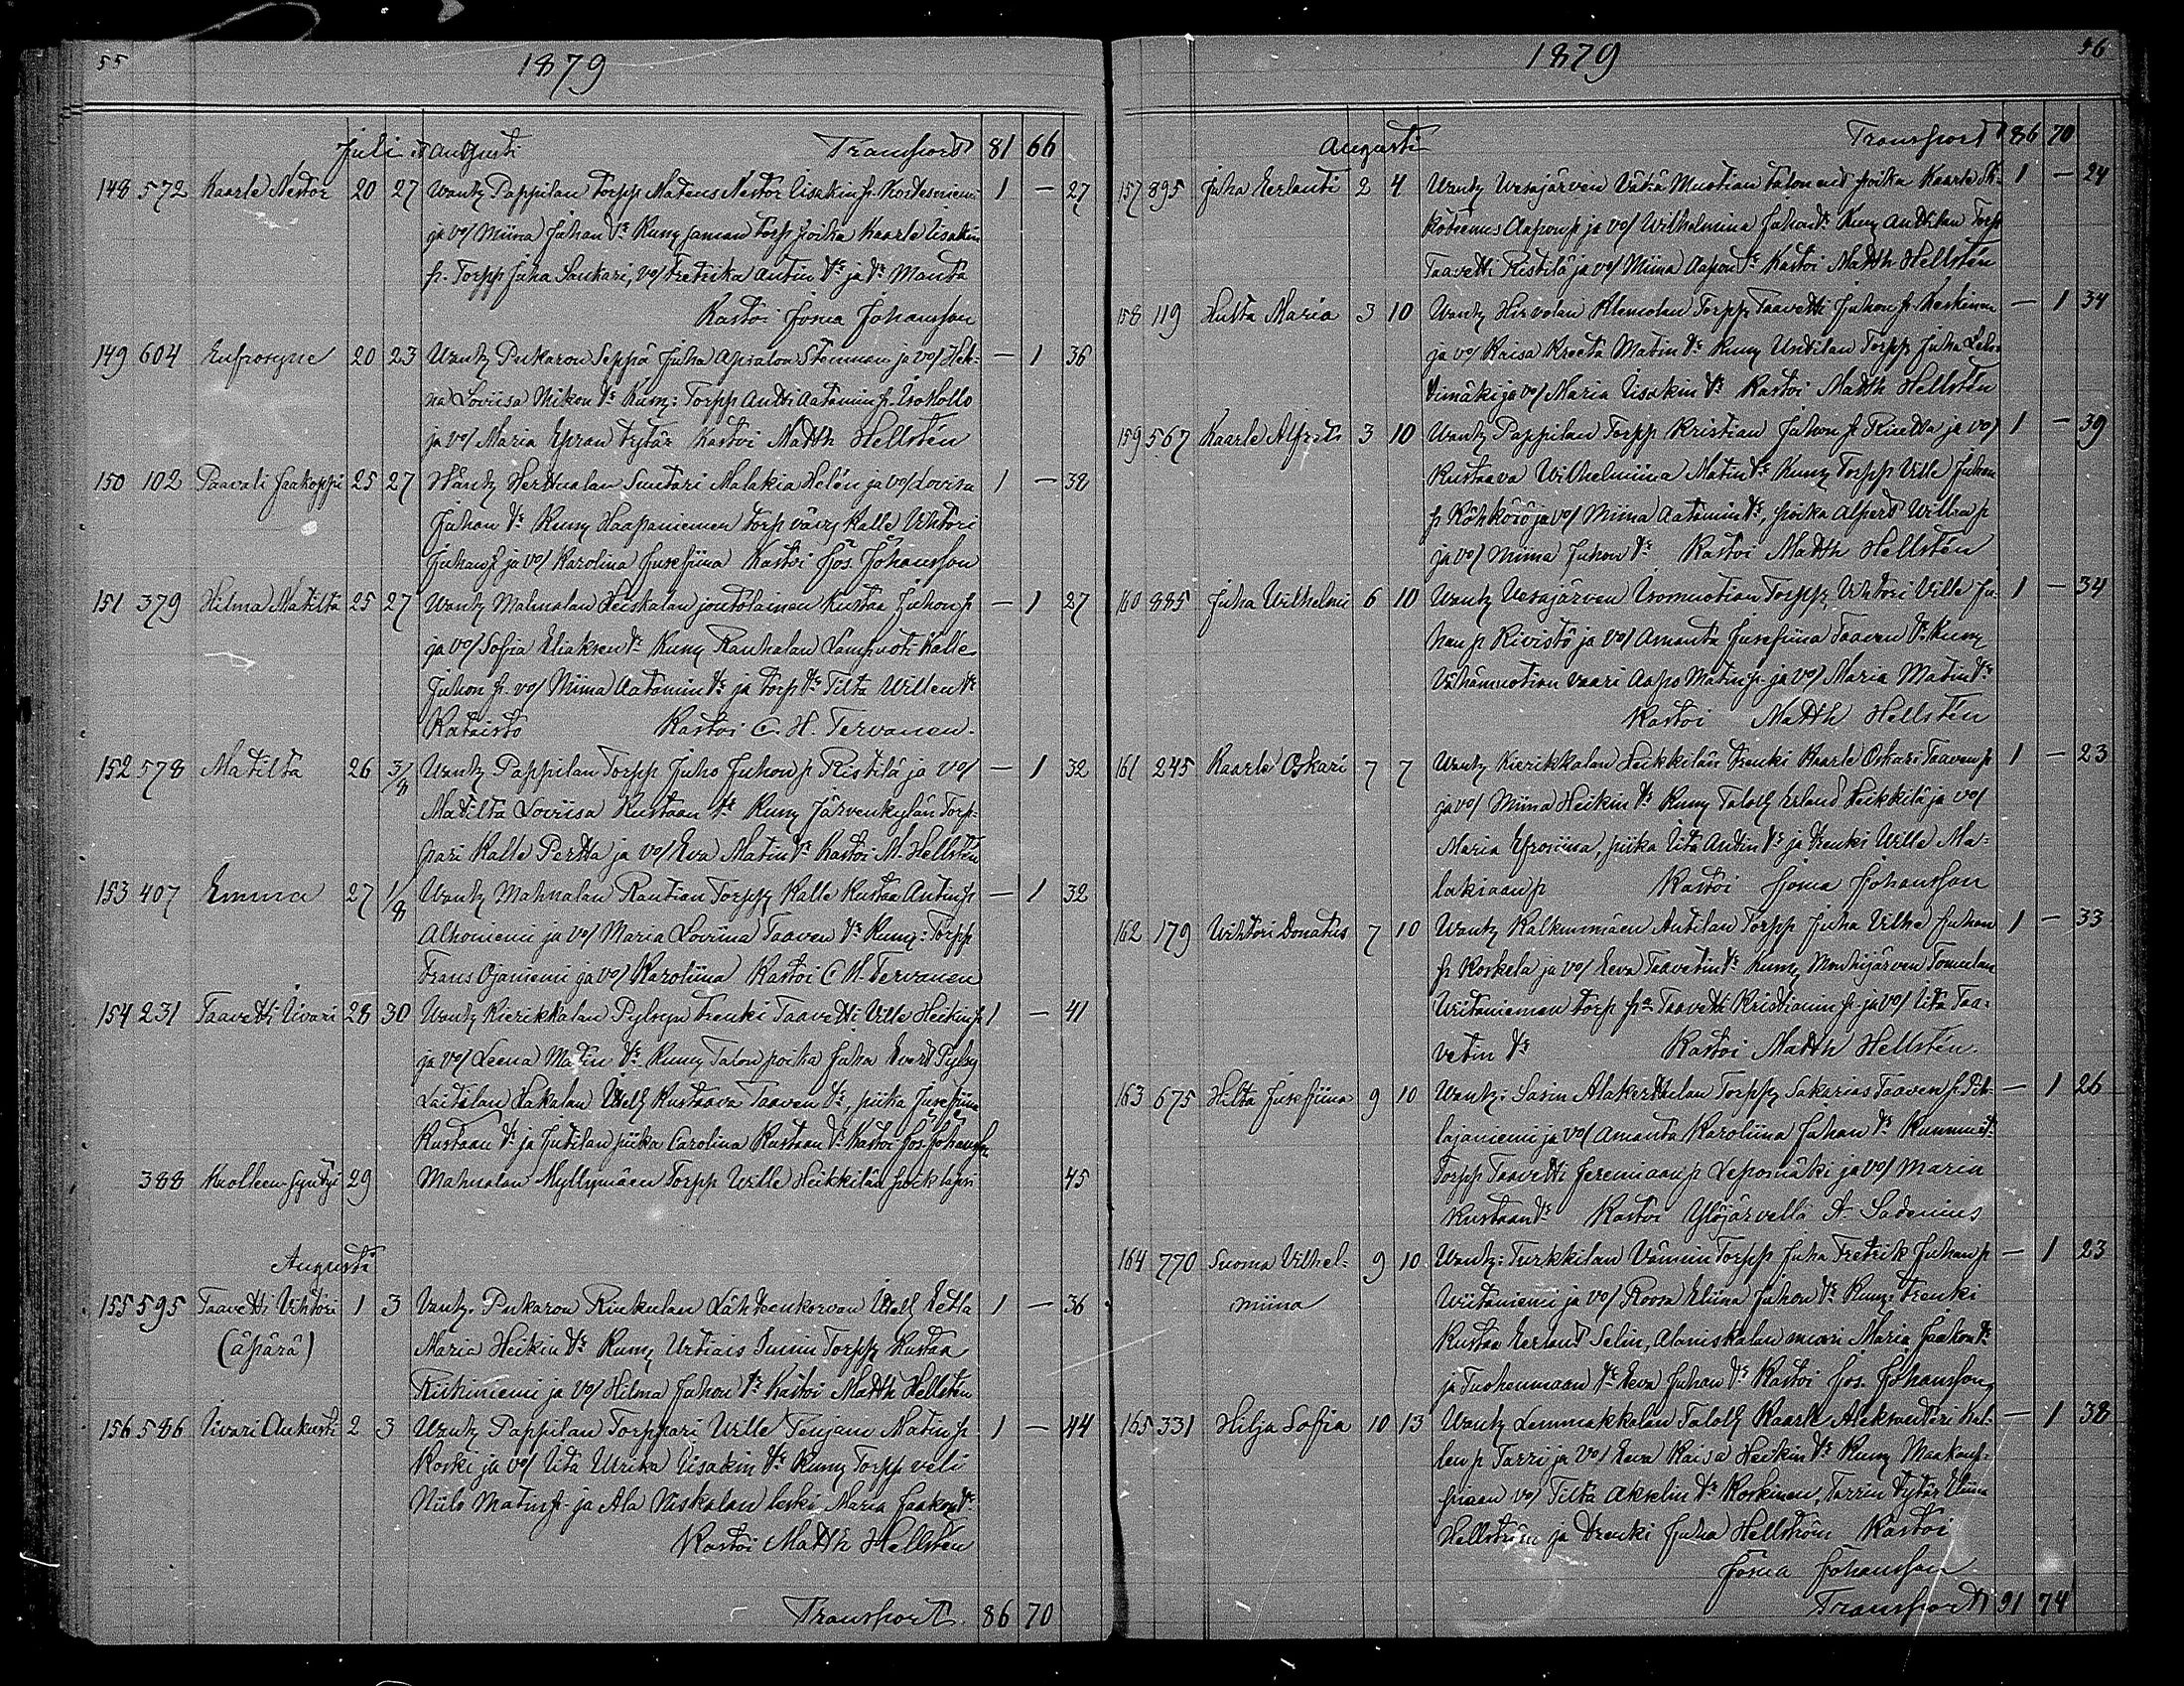 55
1879
Juli & Augusti Transport 81 66
148 572 Kaarle Nestor 20 27 Vanh: Pappilan Torpp Mateus Nestor Iisakin p. Kortesniemi 1 — 27
ja vo/ Miina Juhan tr Kum: saman Torp poika Kaarle Iisakin
p. Torpp Juha Sankari, vo/ Fretrika Antin tr ja tr Manta
Kastoi Josua Johansson
149 604 Eufrosyne 20 23 Vanh: Pukaron Seppä Juha Apsalon Stenman ja vo/ Hel- — 1 36
na Loviisa Mikon tr Kum: Torpp Antti Aatamin p. Isohollo
ja vo/ Maria Epran tytär Kastoi Matth Hellstén
150 102 Paavali Jaakoppi 25 27 Vanh: Herttualan Suutari Malakia Helén ja vo/ Lovisa 1 — 32
Juhan tr Kum: Haapaniemen torp vävy Kalle Vihtori
Juhan p ja vo/ Karolina Josefiina Kastoi Jos. Johansson
151 379 Hilma Matilta 25 27 Vanh: Mahnalan Heiskalan joutolainen Kustaa Juhon p — 1 27
ja vo/ Sofia Eliaksen tr Kum: Rauhalan Lampuoti Kalle
Juhon p. vo/ Miina Aatamin tr ja torp tr Tilta Willen tr
Rataisto Kastoi C. H. Tervanen.
152 578 Matilta 26 3/8 Vanh: Pappilan Torpp Juho Juhon p Ristilä ja vo/ — 1 32
Matilta Loviisa Kustaan tr Kum: Järvenkylän Torp-
pari Kalle Pertta ja vo/ Eva Matin tr Kastoi M. Hellstén
153 407 Emma 27 1/8 Vanh: Mahnalan Rautian Torpp: Kalle Kustaa Antin p — 1 32
Alhoniemi ja vo/ Maria Loviina Taaven tr Kum: Torpp
Frans Ojaniemi ja vo/ Karoliina Kastoi C. H. Tervanen
154 231 Taavetti Iivari 28 30 Vanh: Kierikkalan Pylsyn Trenki Taavetti Ville Heikin p 1 — 41
ja vo/ Leena Matin tr Kum: Talon poika Juha Evert Pylsy
Laitilan Hakalan Itsell Kustaava Taaven tr, piika Josefiina
Kustaan tr ja Jutilan piika Carolina Kustaan tr Kastoi Jos. Johansson
388 Kuolleen Syntyn 29 Mahnalan Myllymäen Torpp Wille Heikkilän poik lapsi 45
Augusti
155 595 Taavetti Vihtori 1 3 Vanh. Pukaron Rinkulan Lähteenkorvan Itsell Eetla 1 — 36
(äpärä) Maria Heikin tr Kum: Urtiais Torpp: Kustaa
Riihiniemi ja vo/ Hilma Juhon tr Kastoi Matth Hellstén
156 586 Iivari Aukusti 2 3 Vanh: Pappilan Torppari Wille Penjam Matin p 1 — 44
Koski ja vo/ Iita Ulrika Iisakin tr Kum: Torpp veli
Niilo Matin p. ja Ala Väskalan leski Maria Jaakon tr
Kastoi Matth Hellstén
Transport 86 70
56
1879
Augusti Transport 86 70
157 895 Juha Eerlanti 2 4 Vanh: Vesajärven Vähä Muotian talon ent poika Kaarle 1 — 24
Aapon p ja vo/ Wilhelmina Juhan tr Kum: Anttilan Torp
Taavetti Ristilä ja vo/ Miina Aapon tr Kastoi Matth Hellstén
158 119 Hulta Maria 3 10 Vanh: Hirvolan Klemolan Torpp: Taavetti Juhon p. Keskinen — 1 34
ja vo/ Kaisa Kreeta Matin tr Kum: Uutilan Torpp Juha Leh-
timäki ja vo/ Maria Iisakin tr Kastoi Matth Hellstén
159 567 Kaarle Alfreti 3 10 Vanh: Pappilan Torpp Kristian Juhon p ja vo/ 1 — 39
Kustaava Wilhelmiina Matin tr Kum: Torpp Ville Juhan
p Köhkörö ja vo/ Miina Aatamin tr, poika Alpert Willen p
ja vo/ Miina Juhon tr Kastoi Matth Hellstén
160 885 Juha Wilhelmi 6 10 Vanh: Vesajärven Isomuotian Torpp: Vihtori Ville Ju- 1 — 34
han p Kivistö ja vo/ Amanta Josefiina Taaven tr Kum:
Vähänmuotian vaari Aapo Matin p. ja vo/ Maria Matin tr
Kastoi Matth Hellstén
161 245 Kaarle Oskari 7 7 Vanh: Kierikkalan Heikkilän trenki Kaarle Oskari Taaven p 1 — 23
ja vo/ Miina Heikin tr Kum: Taloll Erland Heikkilä ja vo/
Maria Efrosiina, piika Iita Antin tr ja trenki Wille Ma-
lakiaan p Kastoi Josua Johansson
162 179 Vihtori Donatus 7 10 Vanh: Kalkunmäen Antilan Torpp Juha Vilhe Juhan 1 — 33
p. Koskela ja vo/ Eeva Taavetin tr Kum: Mouhijärven Tomulan
Viitaniemen torp pa Taavetti Kristianin p. ja vo/ Iita Taa-
vetin tr Kastoi Matth Hellstén.
163 675 Hilta Josefiina 9 10 Vanh: Sasin Alakerttulan Torpp: Sakarias Taaven p. Pih- — 1 26
lajaniemi ja vo/ Amanta Karoliina Juhan tr Kummit:
Torpp Taavetti Jeremiaan p Lepomäki ja vo/ Maria
Kustaan tr Kastoi Ylöjärvellä A. Sadenius
164 770 Suoma Vilhel- 9 10 Vanh: Turkkilan Vännin Torpp Juha Fretrik Juhan p — 1 23
miina Viitaniemi ja vo/ Roosa Eliina Juhon tr Kum: Trenki
Kustaa Eerland Selin, Alaniskalan muori Maria Jaakon tr
ja Tuohenmaan tr Eeva Juhan tr Kastoi Jos. Johansson,
165 331 Hilja Sofia 10 13 Vanh: Lemmakkalan Taloll Kaarle Aleksanteri Kal- — 1 38
len p Tarri ja vo/ Eeva Kaisa Heikin tr Kum: Maakaup-
piaan vo/ Tilta Akselin tr Koskinen, Tarrin tytär Eliina
Hellström ja trenki Juha Hellström Kastoi
Josua Johansson
Transport 91 74